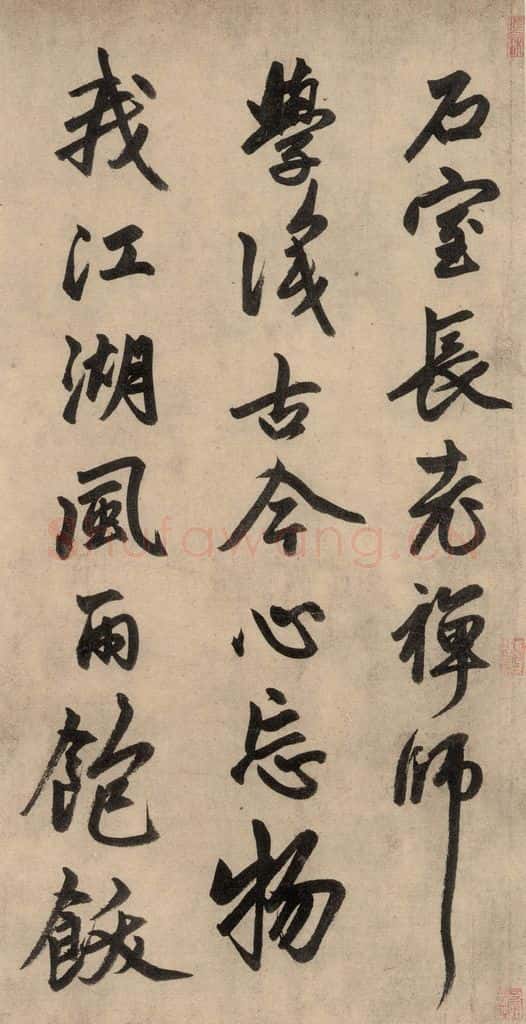 石室長老禪師
學識古今心忘物
我江湖風雨飽飫
Shufawang.cn